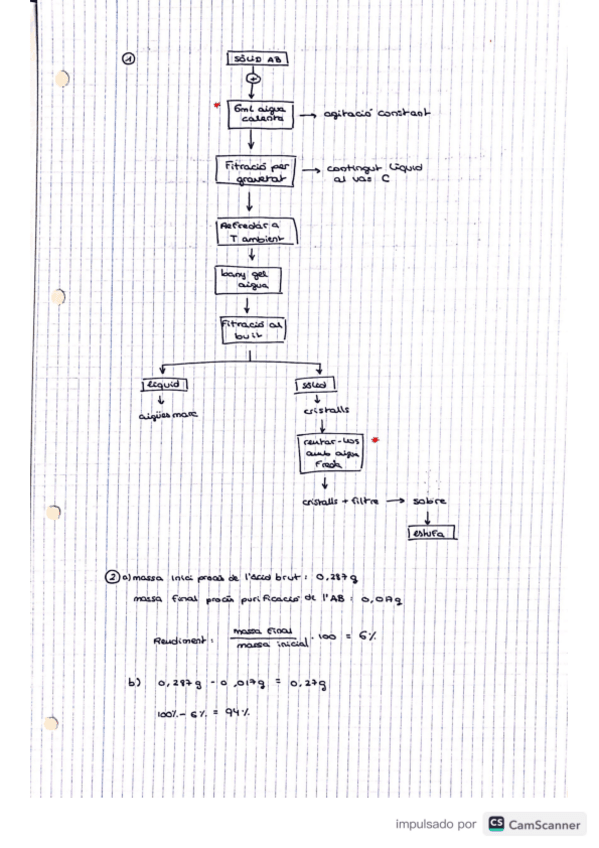 1
SÒLID AB
+
* 6ml aigua
calenta → agitació constant
Fitració per
gravetat → contingut líquid
al vas C
Refredar a
T ambient
bany gel
aigua
Fitració al
buit
líquid
sòlid
aigües mare
cristalls
rentar-los *
amb aigua
Freda
cristalls + filtre → sobre
estufa
2 a) massa inici procés de l'àcid brut : 0,287g
massa final procés purificació de l'AB : 0,017g
Rendiment : massa final / massa inicial · 100 = 6%
b) 0,287g - 0,017g = 0,27g
100% - 6% = 94%
impulsado por CS CamScanner